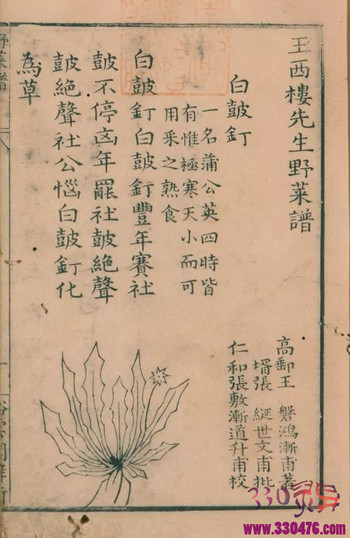 王西樓先生野菜譜
高郵王 磐鴻漸甫著
壻張 綖世文甫批
仁和張敷漸道升甫校
白皷釘
一名蒲公英四時皆
有惟極寒天小而可
用采之熟食
白皷釘白皷釘豐年賽社
皷不停凶年罷社皷絶聲
皷絶聲社公惱白皷釘化
為草
野菜譜
www.330476.com